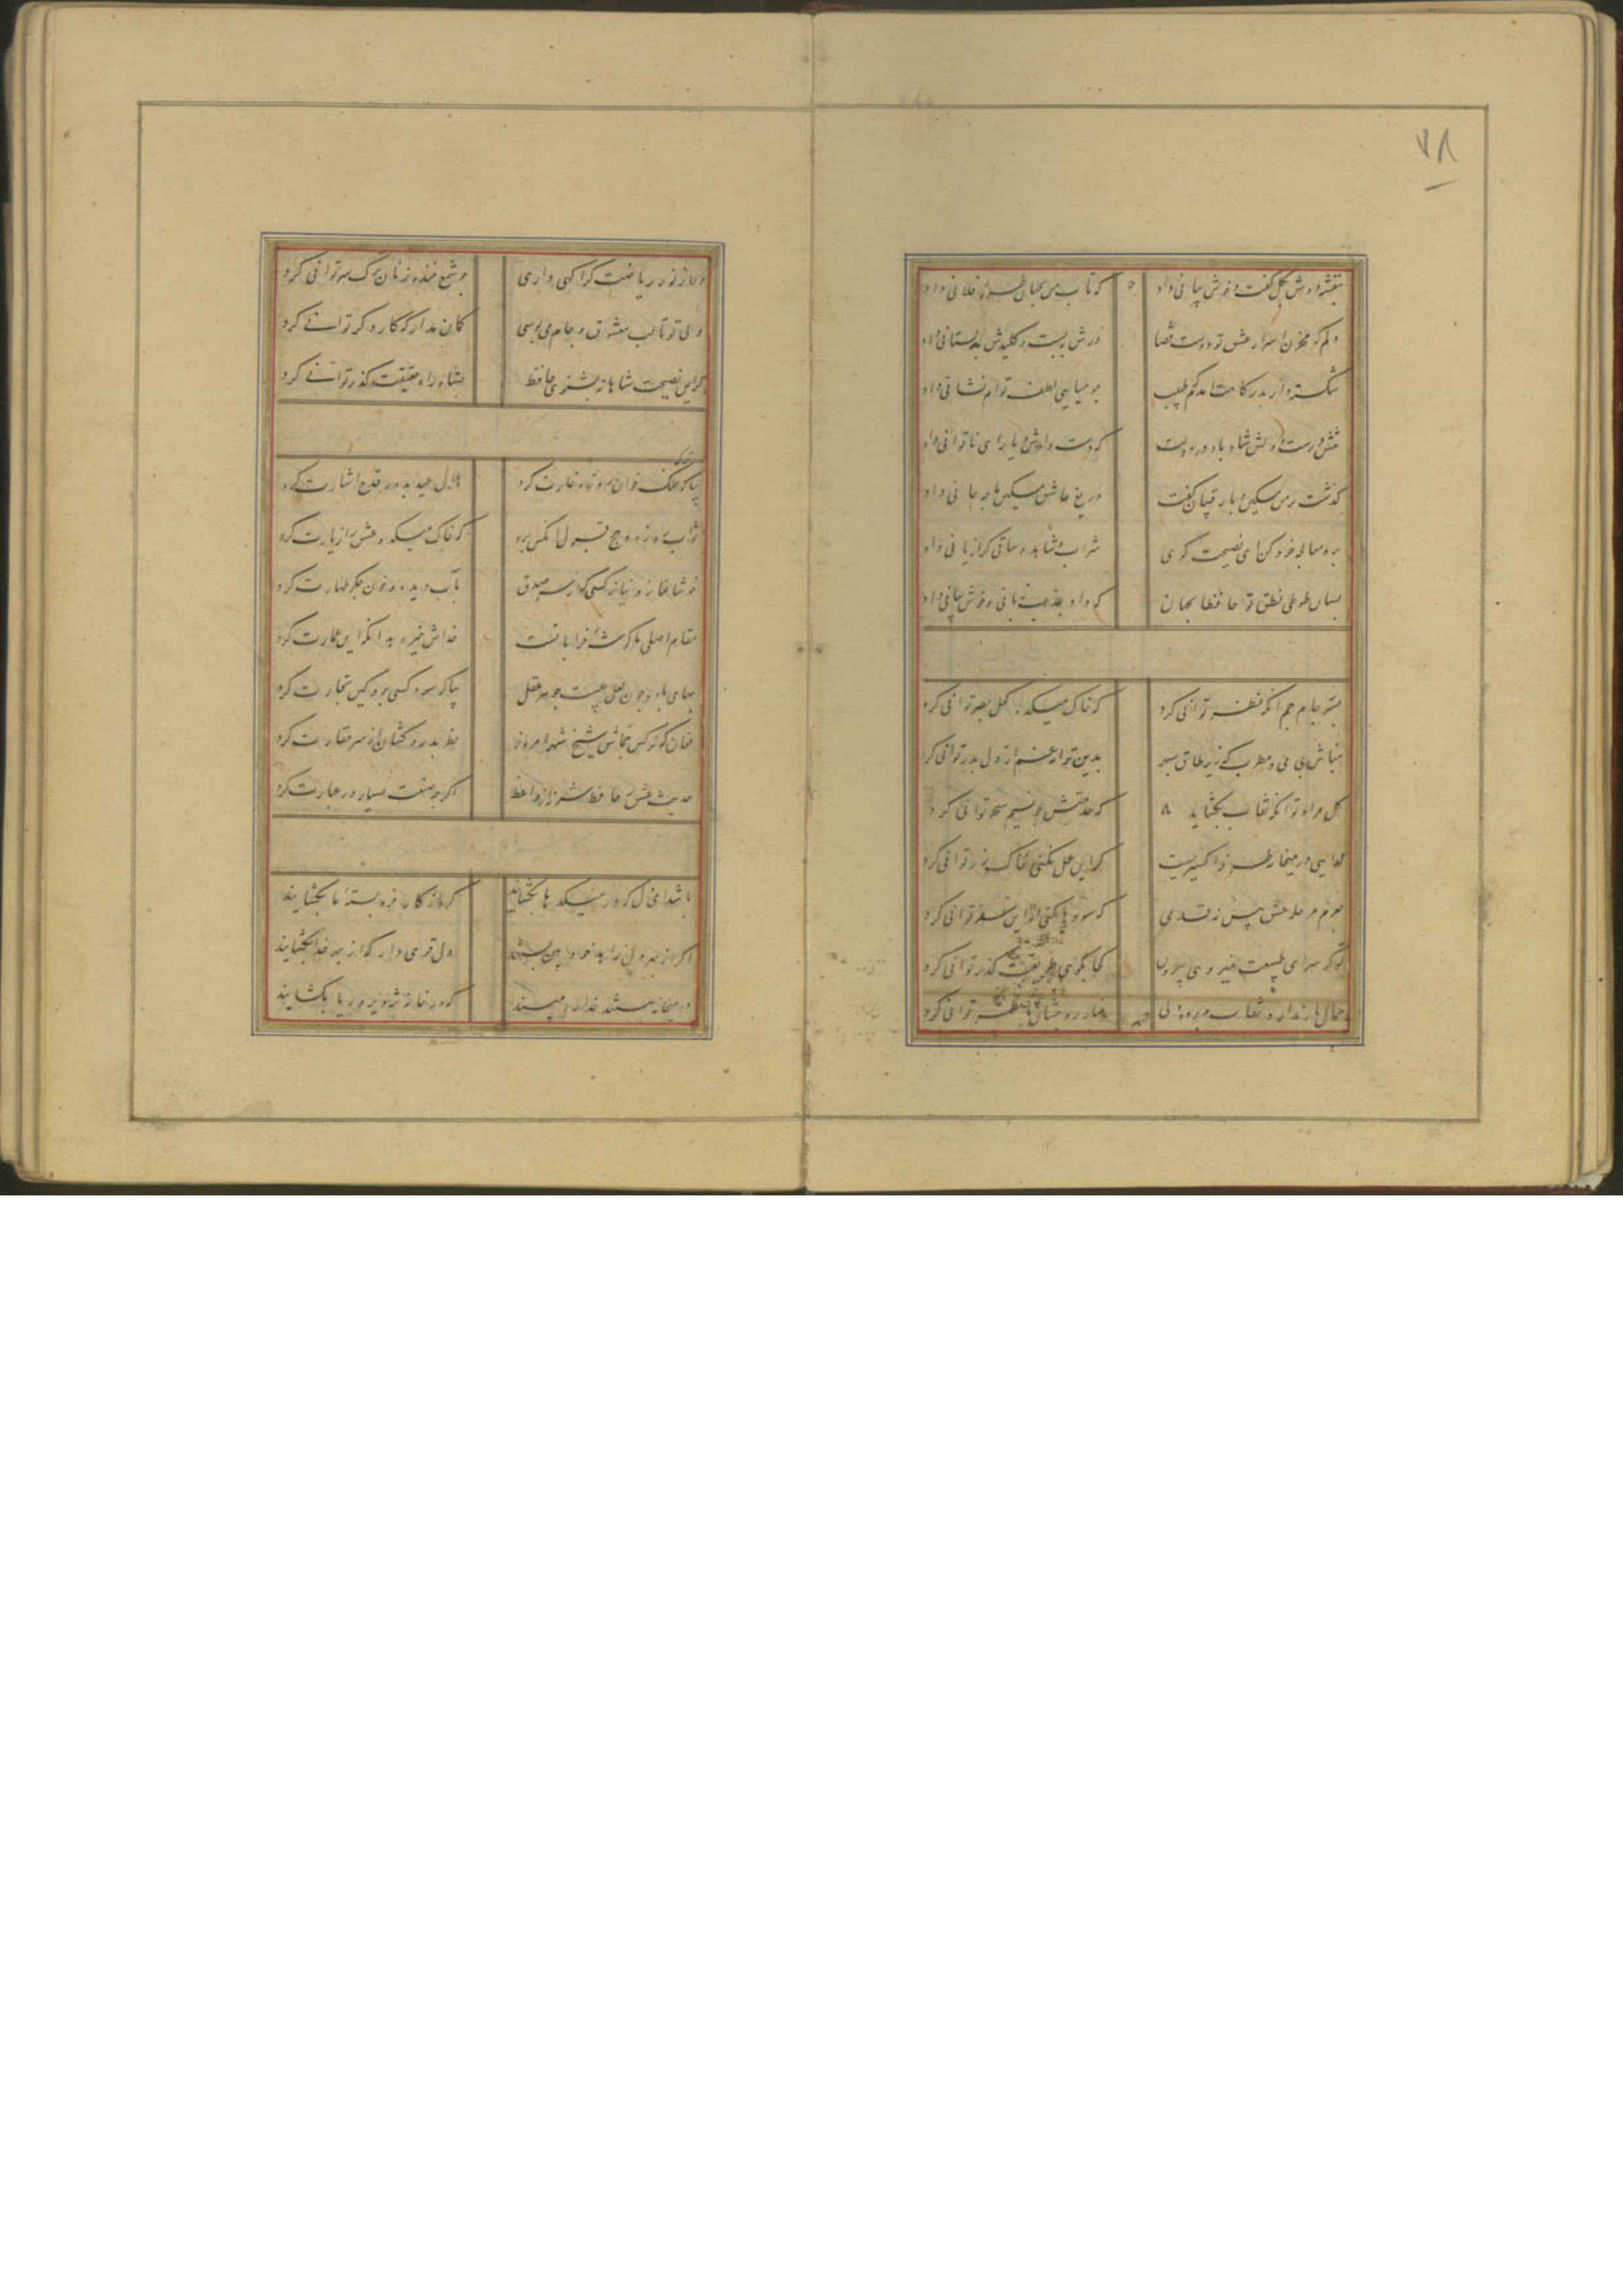 ۷۸
بنفشه دوش بگل گفت و خوش نشانی داد
که تاب من بجهان طره فلانی داد
دلم که مخزن اسرار عشق تو دست قضا
درش ببست و کلیدش بدلستانی داد
شکسته وار بدرگاهت آمدم که طبیب
بمومیایی لطف توام نشانی داد
تنش درست و دلش شاد باد در دولت
که دست دادش و یاری ناتوانی داد
گذشت بر من مسکین و با رقیبان گفت
دریغ عاشق مسکین ما چه جانی داد
برو معالجه خود کن ای نصیحت گوی
شراب و شاهد و ساقی کرا زیانی داد
بسان طوطی نطق تو حافظا بجهان
که داد عذب زبانی و خوش بیانی داد
بسر جام جم آنکه نظر توانی کرد
که خاک میکده کحل بصر توانی کرد
مباش بی می و مطرب که زیر طاق سپهر
بدین ترانه غم از دل بدر توانی کرد
گل مراد تو آنگه نقاب بگشاید
که خدمتش چو نسیم سحر توانی کرد
گدایی در میخانه طرفه اکسیریست
گر این عمل بکنی خاک زر توانی کرد
بعزم مرحله عشق پیش نه قدمی
که سودها بکنی ار این سفر توانی کرد
تو کز سرای طبیعت نمیروی بیرون
کجا بکوی طریقت گذر توانی کرد
جمال یار ندارد نقاب و پرده ولی
غبار ره بنشان تا نظر توانی کرد
دلا ز نور ریاضت گر آگهی داری
چو شمع خنده زنان ترک سر توانی کرد
ولی تو تا لب معشوق و جام می بوسی
گمان مدار که کار دگر توانی کرد
گر این نصیحت شاهانه بشنوی حافظ
بشاه راه حقیقت گذر توانی کرد
بیا که ترک فلک خوان روزه غارت کرد
هلال عید بدور قدح اشارت کرد
ثواب روزه و حج قبول آنکس برد
که خاک میکده عشق را زیارت کرد
خوشا نماز و نیاز کسی که از سر صدق
بآب دیده و خون جگر طهارت کرد
مقام اصلی ما گوشه خراباتست
خداش خیر دهد آنکه این عمارت کرد
بهای باده چون لعل چیست جوهر عقل
بیا که سود کسی برد کین تجارت کرد
فغان که نرگس جماش شیخ شهر امروز
نظر بدردکشان از سر حقارت کرد
حدیث عشق ز حافظ شنو نه از واعظ
اگرچه صنعت بسیار در عبارت کرد
باشد ای دل که در میکدها بگشایند
گره از کار فروبسته ما بگشایند
اگر از بهر دل زاهد خودبین بستند
دل قوی دار که از بهر خدا بگشایند
در میخانه ببستند خدایا مپسند
که در خانه تزویر و ریا بگشایند